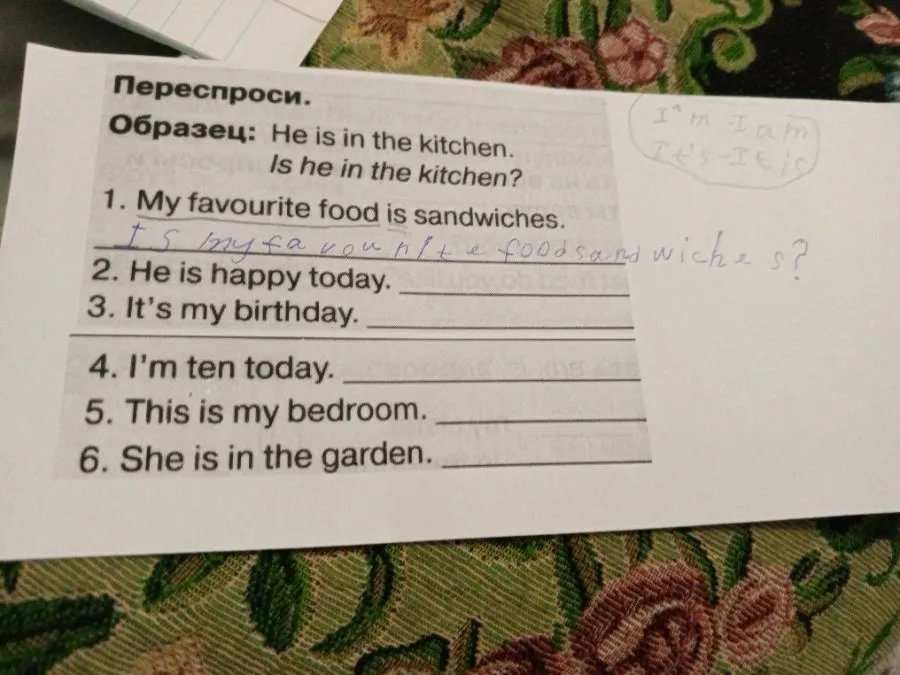 Переспроси.
Образец: He is in the kitchen.
Is he in the kitchen?
1. My favourite food is sandwiches.
Is my favourite food sandwiches?
2. He is happy today.
3. It's my birthday.
4. I'm ten today.
5. This is my bedroom.
6. She is in the garden.
I'm I am
It's-It is